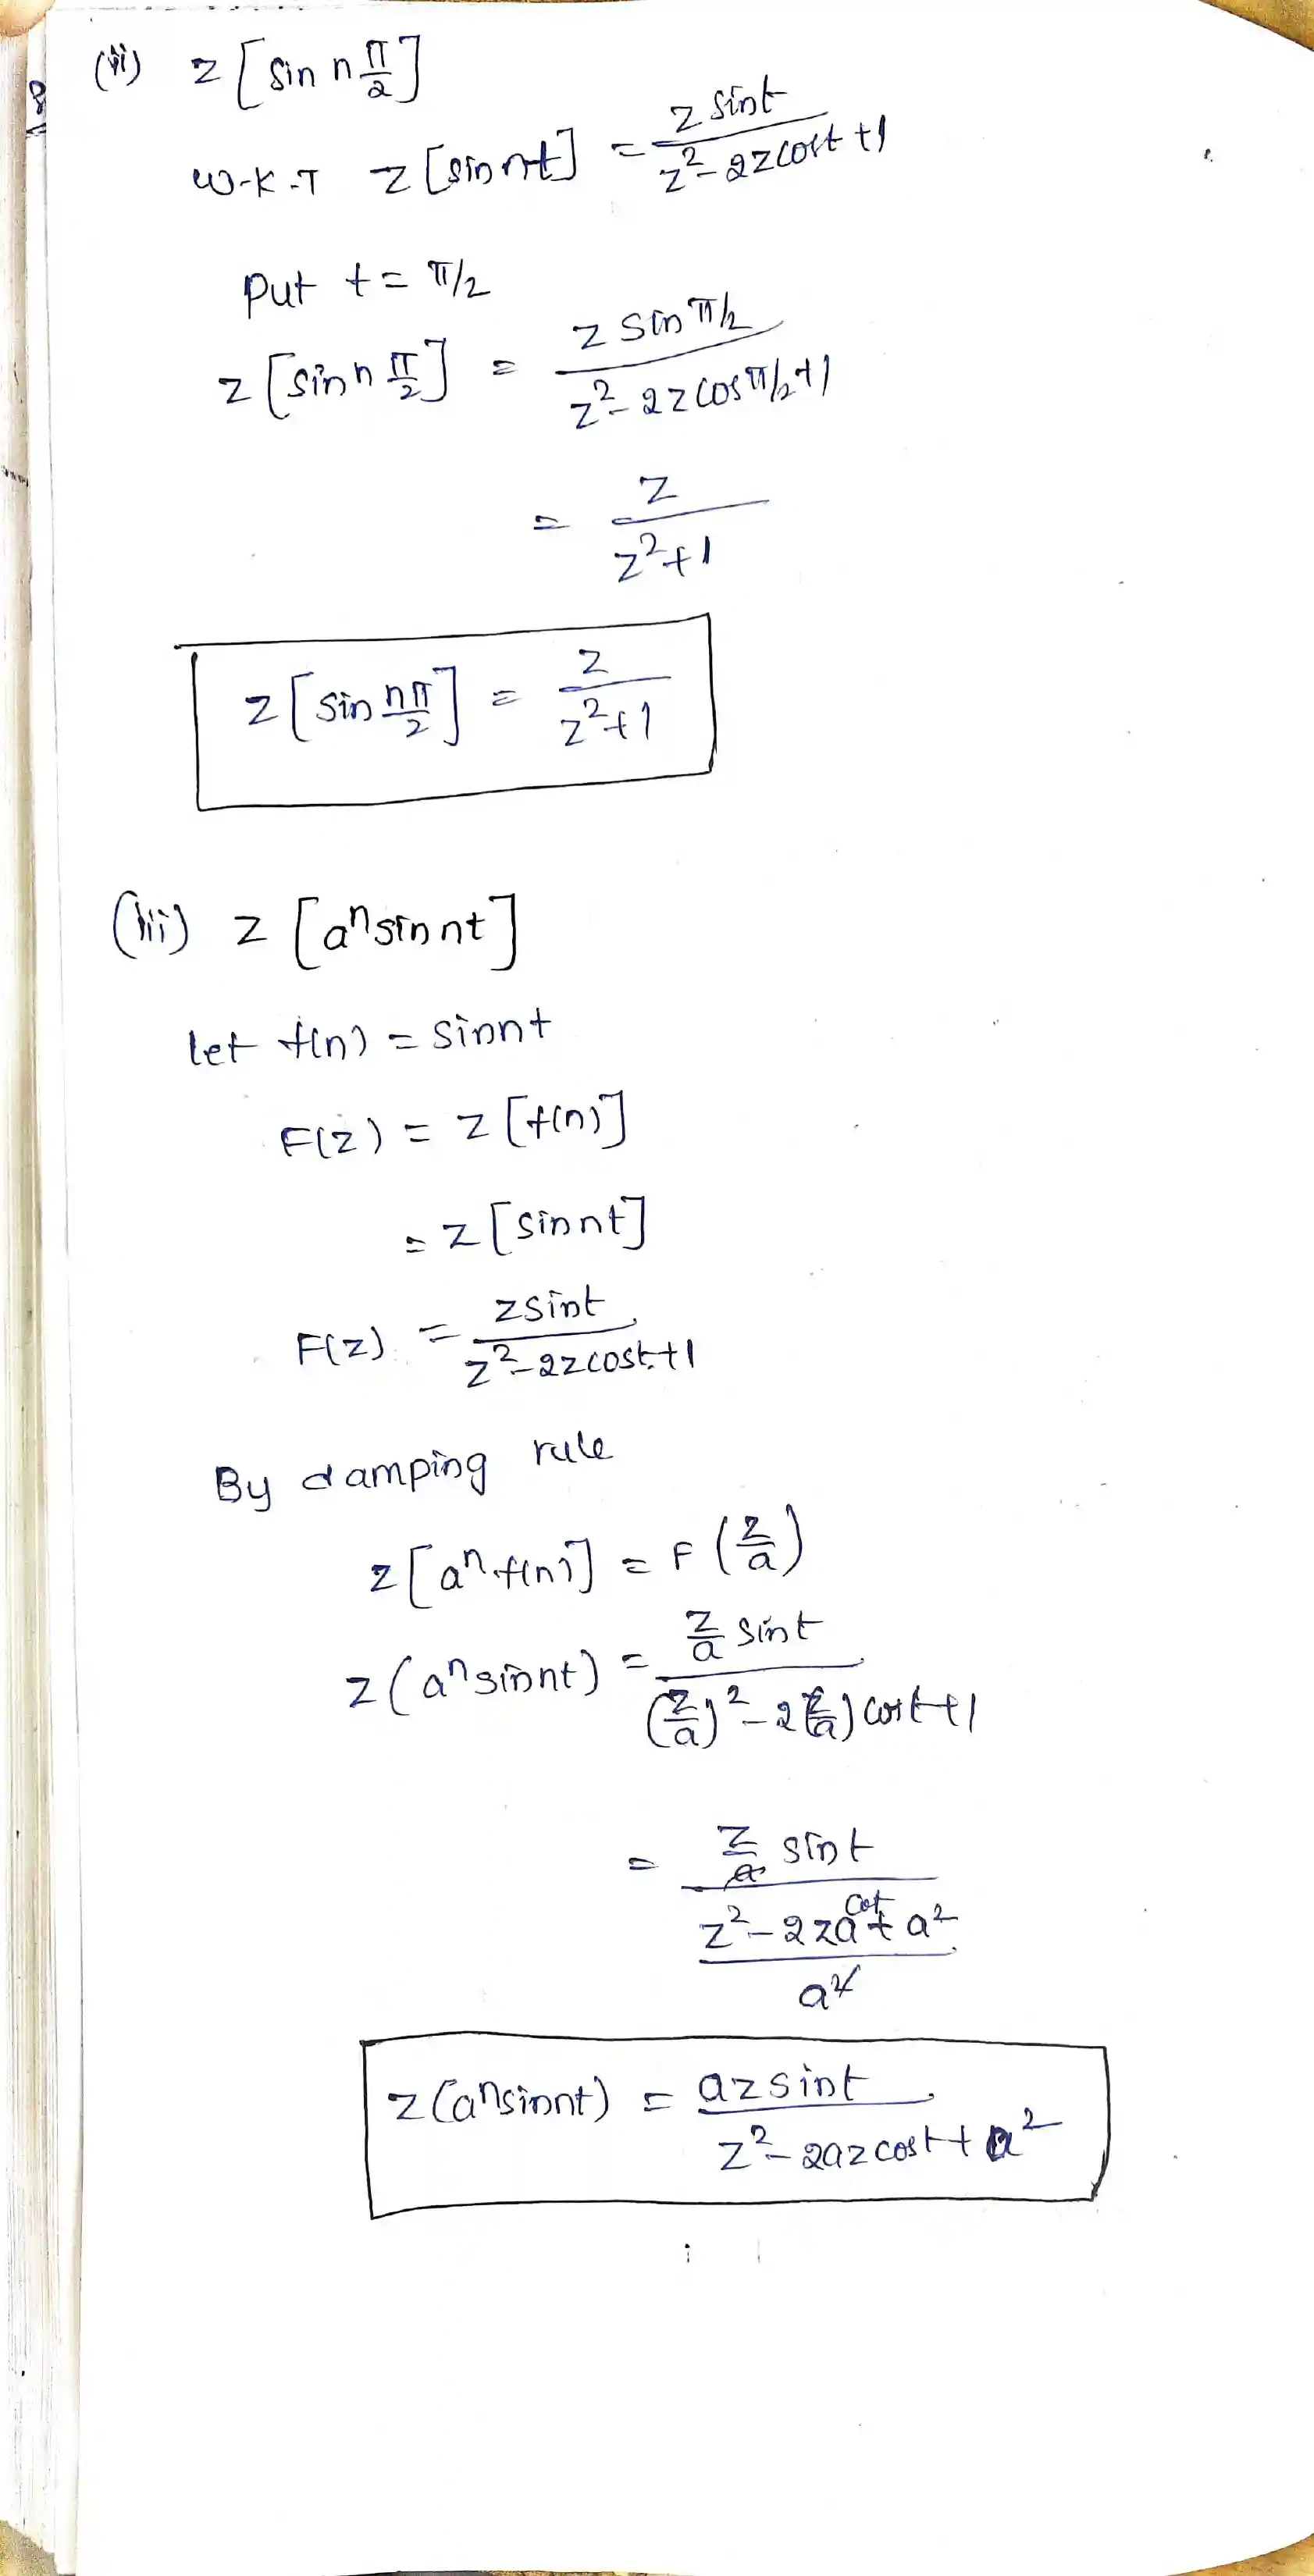 (ii) z [sin n π/2]
W.K.T z [sin nt] = z sint / z² - 2z cost + 1
Put t = π/2
z [sin n π/2] = z sin π/2 / z² - 2z cos π/2 + 1
= z / z² + 1
z [sin nπ/2] = z / z² + 1
(iii) z [aⁿ sin nt]
let f(n) = sin nt
F(z) = z [f(n)]
= z [sin nt]
F(z) = z sint / z² - 2z cost + 1
By damping rule
z [aⁿ f(n)] = F (z/a)
z (aⁿ sin nt) = z/a sint / (z/a)² - 2(z/a) cost + 1
= z/a sint / z² - 2za cost + a² / a²
z (aⁿ sin nt) = az sint / z² - 2az cost + a²